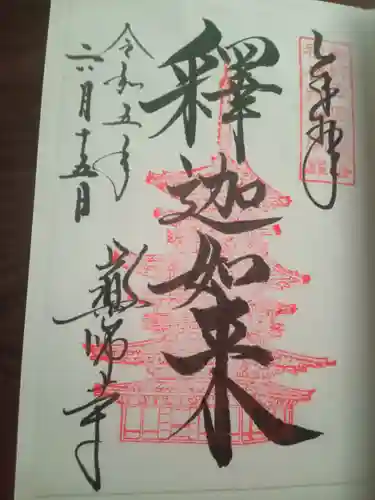 奉拝
釋迦如来
令和五年
六月十五日
藥師寺